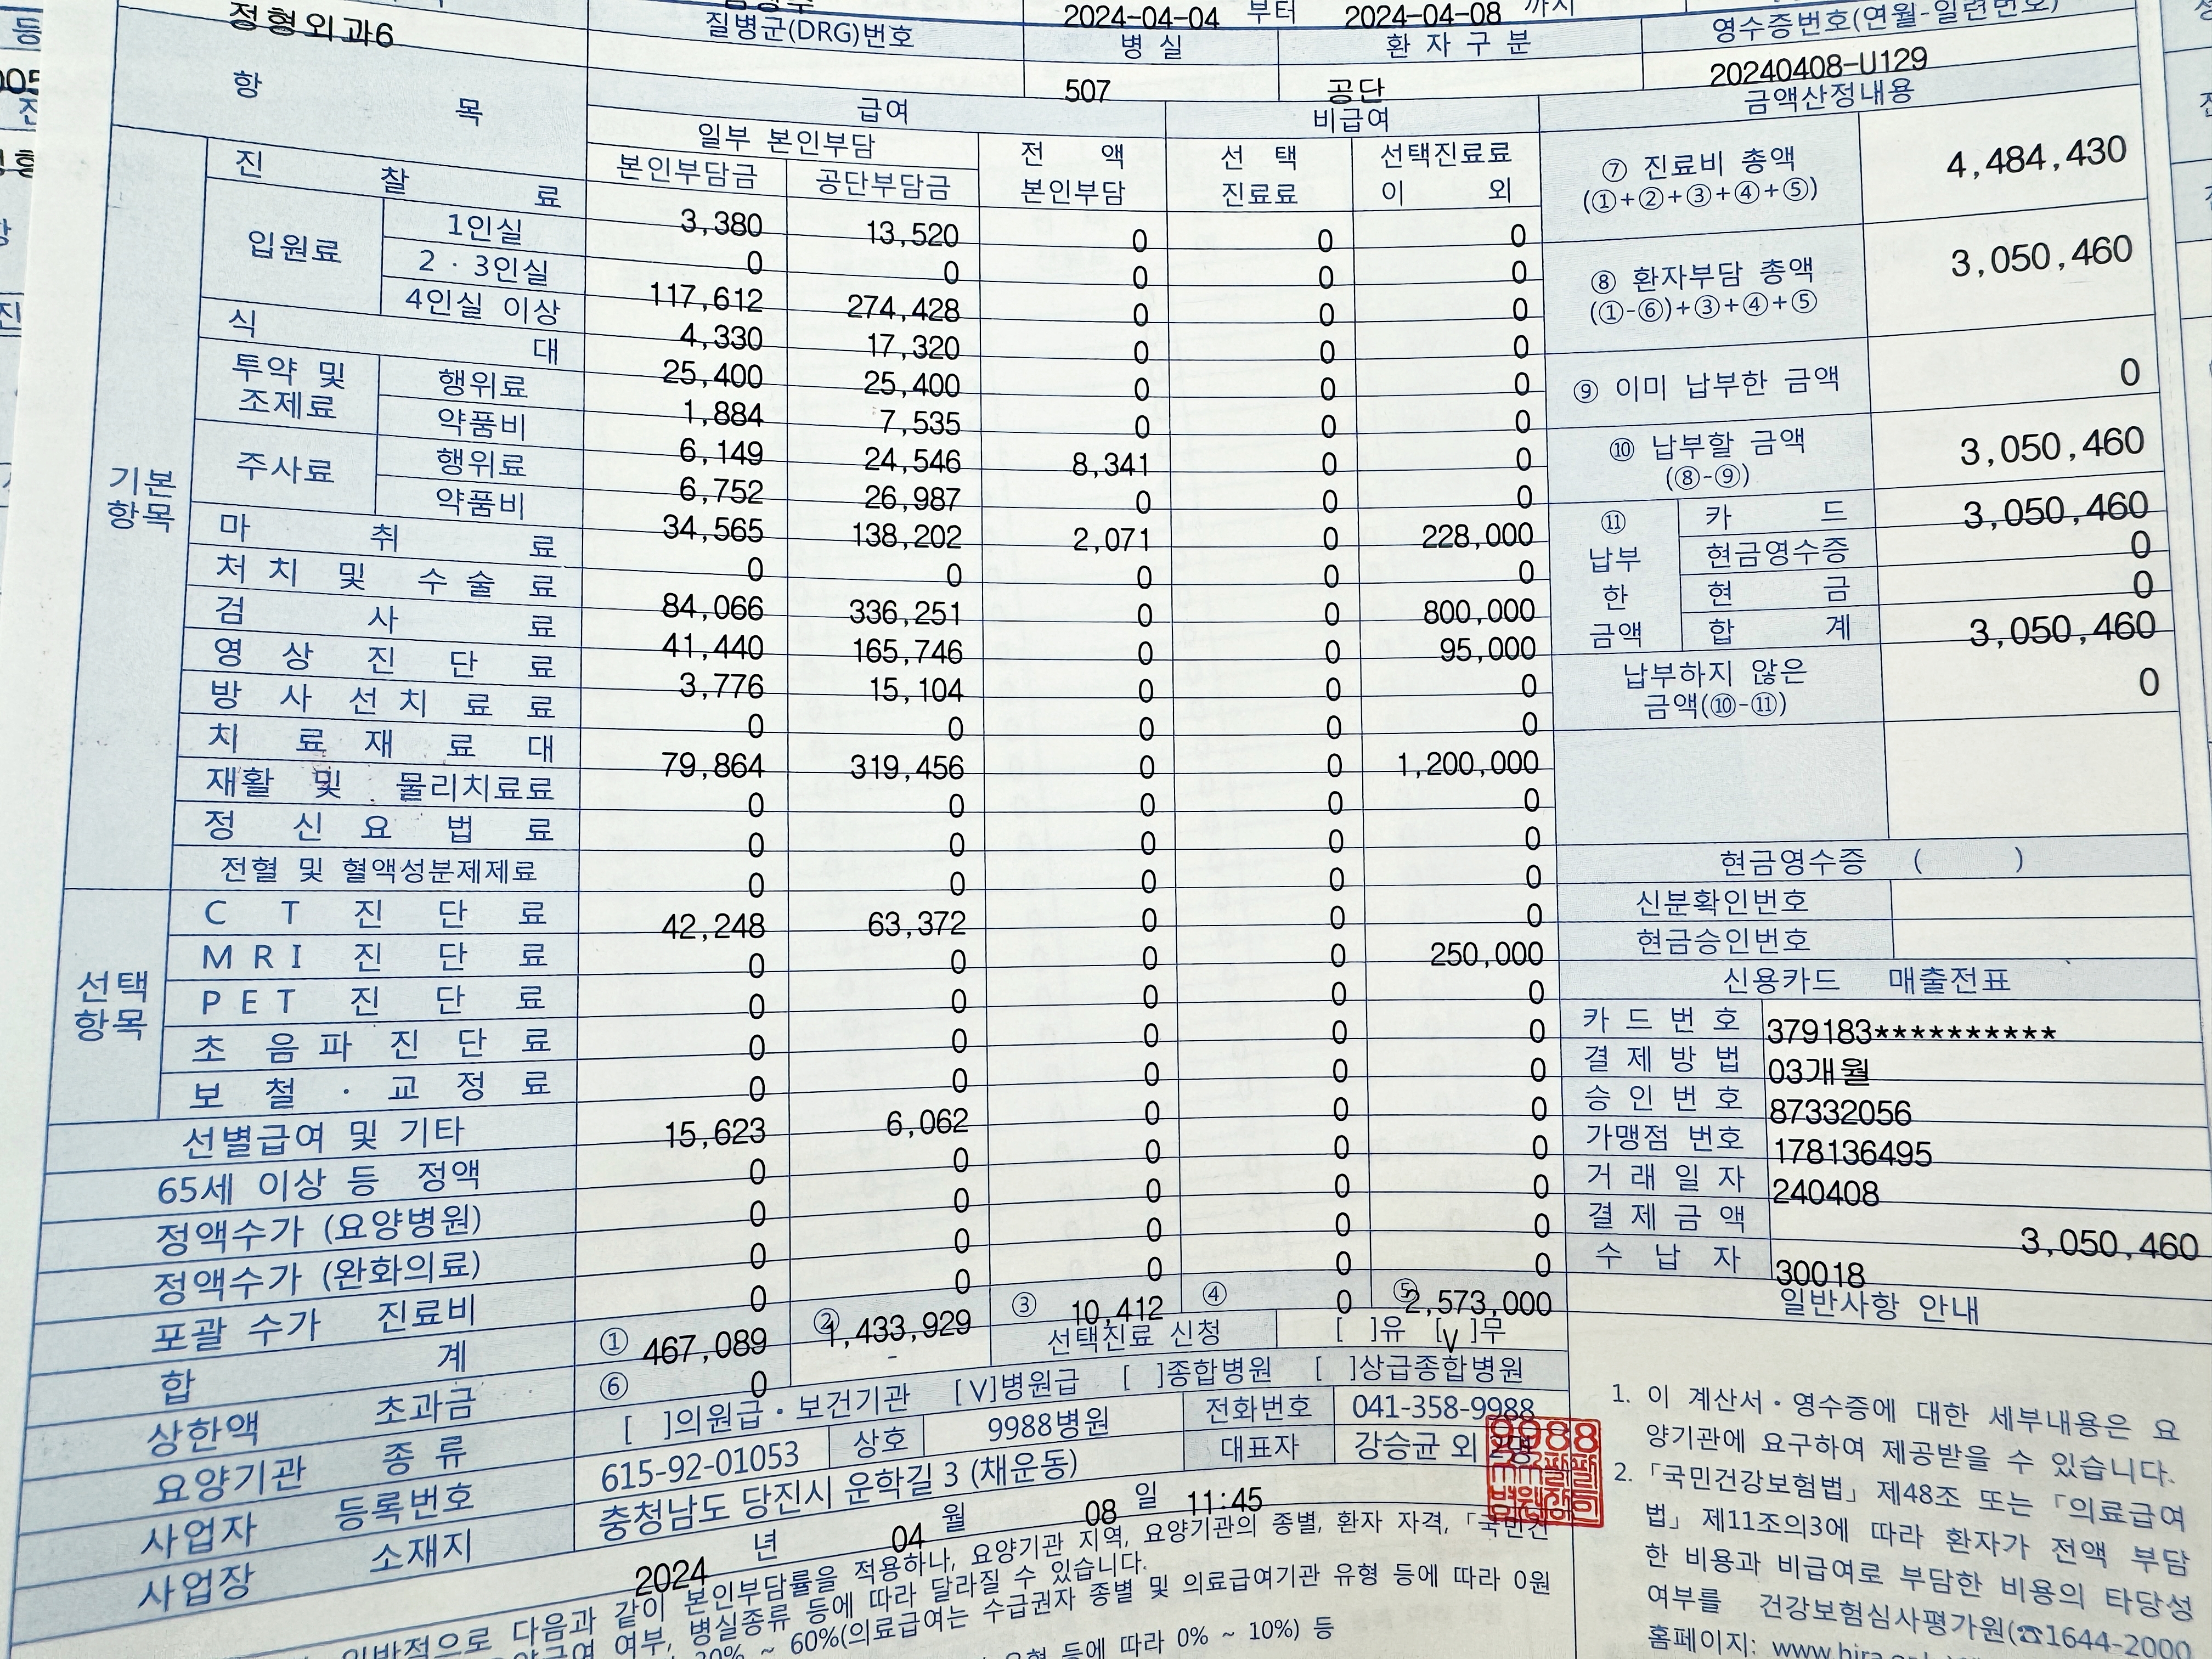 정형외과6
2024-04-04 부터 2024-04-08 까지
질병군(DRG)번호 병 실 환 자 구 분 영수증번호(연월-일련번호)
507 공단 20240408-U129
항 목 급여 비급여 금액산정내용
일부 본인부담 전 액 본인부담 선 택 진료료 선택진료료 이 외
본인부담금 공단부담금
기본 항목
진 찰 료 3,380 13,520 0 0 0
입원료 1인실 0 0 0 0 0
2 · 3인실 117,612 274,428 0 0 0
4인실 이상 4,330 17,320 0 0 0
식 대 25,400 25,400 0 0 0
투약 및 조제료 행위료 1,884 7,535 0 0 0
약품비 6,149 24,546 8,341 0 0
주사료 행위료 6,752 26,987 0 0 0
약품비 34,565 138,202 2,071 0 228,000
마 취 료 0 0 0 0 0
처 치 및 수 술 료 84,066 336,251 0 0 800,000
검 사 료 41,440 165,746 0 0 95,000
영 상 진 단 료 3,776 15,104 0 0 0
방 사 선 치 료 료 0 0 0 0 0
치 료 재 료 대 79,864 319,456 0 0 1,200,000
재활 및 물리치료료 0 0 0 0 0
정 신 요 법 료 0 0 0 0 0
전혈 및 혈액성분제제료 0 0 0 0 0
선택 항목
C T 진 단 료 42,248 63,372 0 0 0
M R I 진 단 료 0 0 0 0 250,000
P E T 진 단 료 0 0 0 0 0
초 음 파 진 단 료 0 0 0 0 0
보 철 · 교 정 료 0 0 0 0 0
선별급여 및 기타 15,623 6,062 0 0 0
65세 이상 등 정액 0 0 0 0 0
정액수가 (요양병원) 0 0 0 0 0
정액수가 (완화의료) 0 0 0 0 0
포괄 수가 진료비 0 0 0 0 0
합 계 ① 467,089 ② 1,433,929 ③ 10,412 ④ 0 ⑤ 2,573,000
상한액 초과금 ⑥ 0 - 선택진료 신청 [ ]유 [V]무
요양기관 종 류 [ ]의원급 · 보건기관 [V]병원급 [ ]종합병원 [ ]상급종합병원
사업자 등록번호 615-92-01053 상호 9988병원 전화번호 041-358-9988
사업장 소재지 충청남도 당진시 운학길 3 (채운동) 대표자 강승균 외 2명
2024 년 04 월 08 일 11:45
⑦ 진료비 총액 (①+②+③+④+⑤) 4,484,430
⑧ 환자부담 총액 (①-⑥)+③+④+⑤ 3,050,460
⑨ 이미 납부한 금액 0
⑩ 납부할 금액 (⑧-⑨) 3,050,460
⑪ 납부 한 금액
카 드 3,050,460
현금영수증 0
현 금 0
합 계 3,050,460
납부하지 않은 금액(⑩-⑪) 0
현금영수증 ( )
신분확인번호
현금승인번호
신용카드 매출전표
카 드 번 호 379183**********
결 제 방 법 03개월
승 인 번 호 87332056
가맹점 번호 178136495
거 래 일 자 240408
결 제 금 액 3,050,460
수 납 자 30018
일반사항 안내
1. 이 계산서 · 영수증에 대한 세부내용은 요
양기관에 요구하여 제공받을 수 있습니다.
2. 「국민건강보험법」 제48조 또는 「의료급여
법」 제11조의3에 따라 환자가 전액 부담
한 비용과 비급여로 부담한 비용의 타당성
여부를 건강보험심사평가원(☎1644-2000
홈페이지: www.hira
일반적으로 다음과 같이 본인부담률을 적용하나, 요양기관 지역, 요양기관의 종별, 환자 자격, 「국민건
여부, 병실종류 등에 따라 달라질 수 있습니다.
20% ~ 60%(의료급여는 수급권자 종별 및 의료급여기관 유형 등에 따라 0원
유형 등에 따라 0% ~ 10%) 등